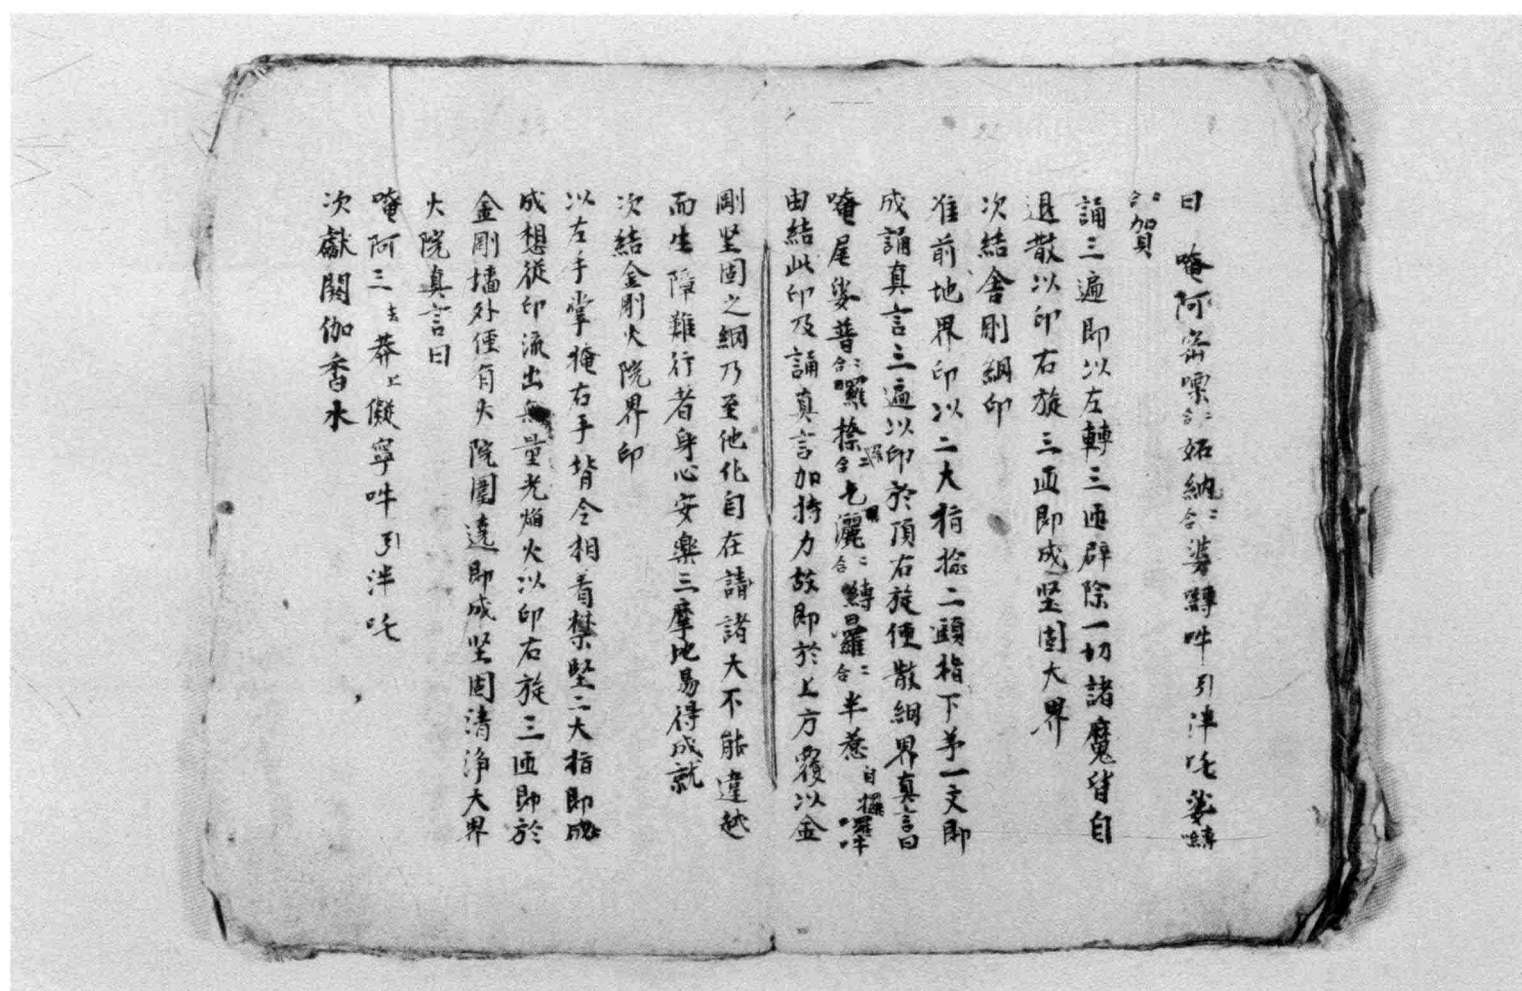 曰 唵阿蜜㗚二合妬納二合婆嚩吽引泮吒娑嚩
二合賀
誦三遍即以左轉三迊辟除一切諸魔皆自
退散以印右旋三迊即成坚固大界
次結金剛網印
准前地界印以二大指捻二頭指下第一文即
成誦真言三遍以印於頂右旋便散網界真言曰
唵尾娑普二合羅捺二合乞灑二合嚩曰羅二合半惹自攞囉吽
由結此印及誦真言加持力故即於上方覆以金
剛坚固之網乃至他化自在請諸天不能違越
而生障難行者身心安樂三摩地易得成就
次結金剛火院界印
以左手掌掩右手背令相着㩒竪二大指即成
成想從印流出無量光焔火以印右旋三迊即於
金剛墻外便有火院圍遶即成坚固清淨大界
火院真言曰
唵阿三去莽上儗寧吽引泮吒
次獻閼伽香水